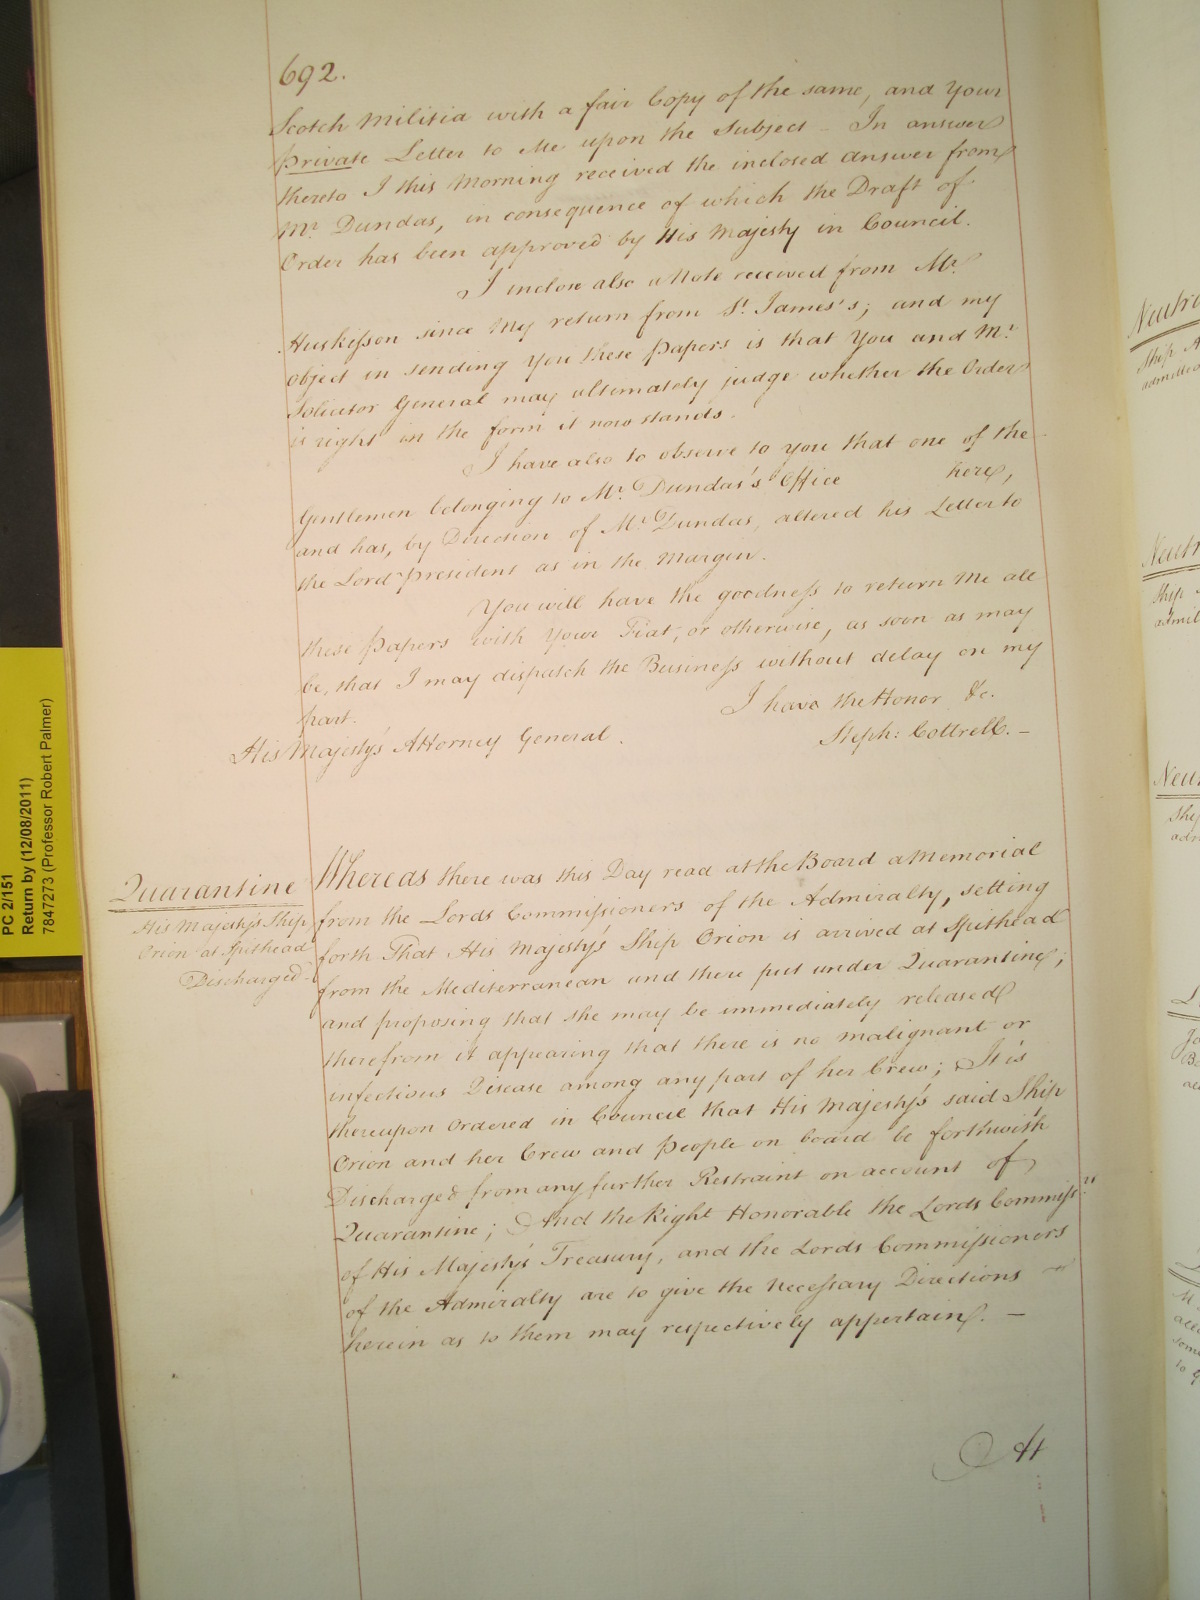 692.
Scotch Militia with a fair Copy of the same, and Your
Private Letter to Me upon the Subject – In answer
thereto I this Morning received the inclosed answer from
Mr. Dundas, in consequence of which the Draft of
Order has been approved by His Majesty in Council.
I inclose also a Note received from Mr.
Huskisson since My return from St. James's; and my
object in sending You these Papers is that You and Mr.
Solicitor General may ultimately judge whether the Order
is right in the form it now stands.
I have also to observe to you that one of the
Gentlemen belonging to Mr. Dundas's Office here,
and has, by Direction of Mr. Dundas, altered his Letter to
the Lord President as in the Margin.
You will have the goodness to return Me all
these Papers with Your Fiat, or otherwise, as soon as may
be, that I may dispatch the Business without delay on my
part.
I have the Honor &c.
His Majesty's Attorney General.
Steph: Cottrell. –
Quarantine
His Majesty's Ship
Orion at Spithead
Discharged.
Whereas there was this Day read at the Board a Memorial
from the Lords Commissioners of the Admiralty, setting
forth That His Majesty's Ship Orion is arrived at Spithead
from the Mediterranean and there put under Quarantine;
and proposing that she may be immediately released
therefrom it appearing that there is no malignant or
infectious Disease among any part of her Crew; It is
thereupon Ordered in Council that His Majesty's said Ship
Orion and her Crew and People on board be forthwith
Discharged from any further Restraint on account of
Quarantine; And the Right Honorable the Lords Commissrs.
of His Majesty's Treasury, and the Lords Commissioners
of the Admiralty are to give the necessary Directions
herein as to them may respectively appertain. –
At
PC 2/151
Return by (12/08/2011)
7847273 (Professor Robert Palmer)